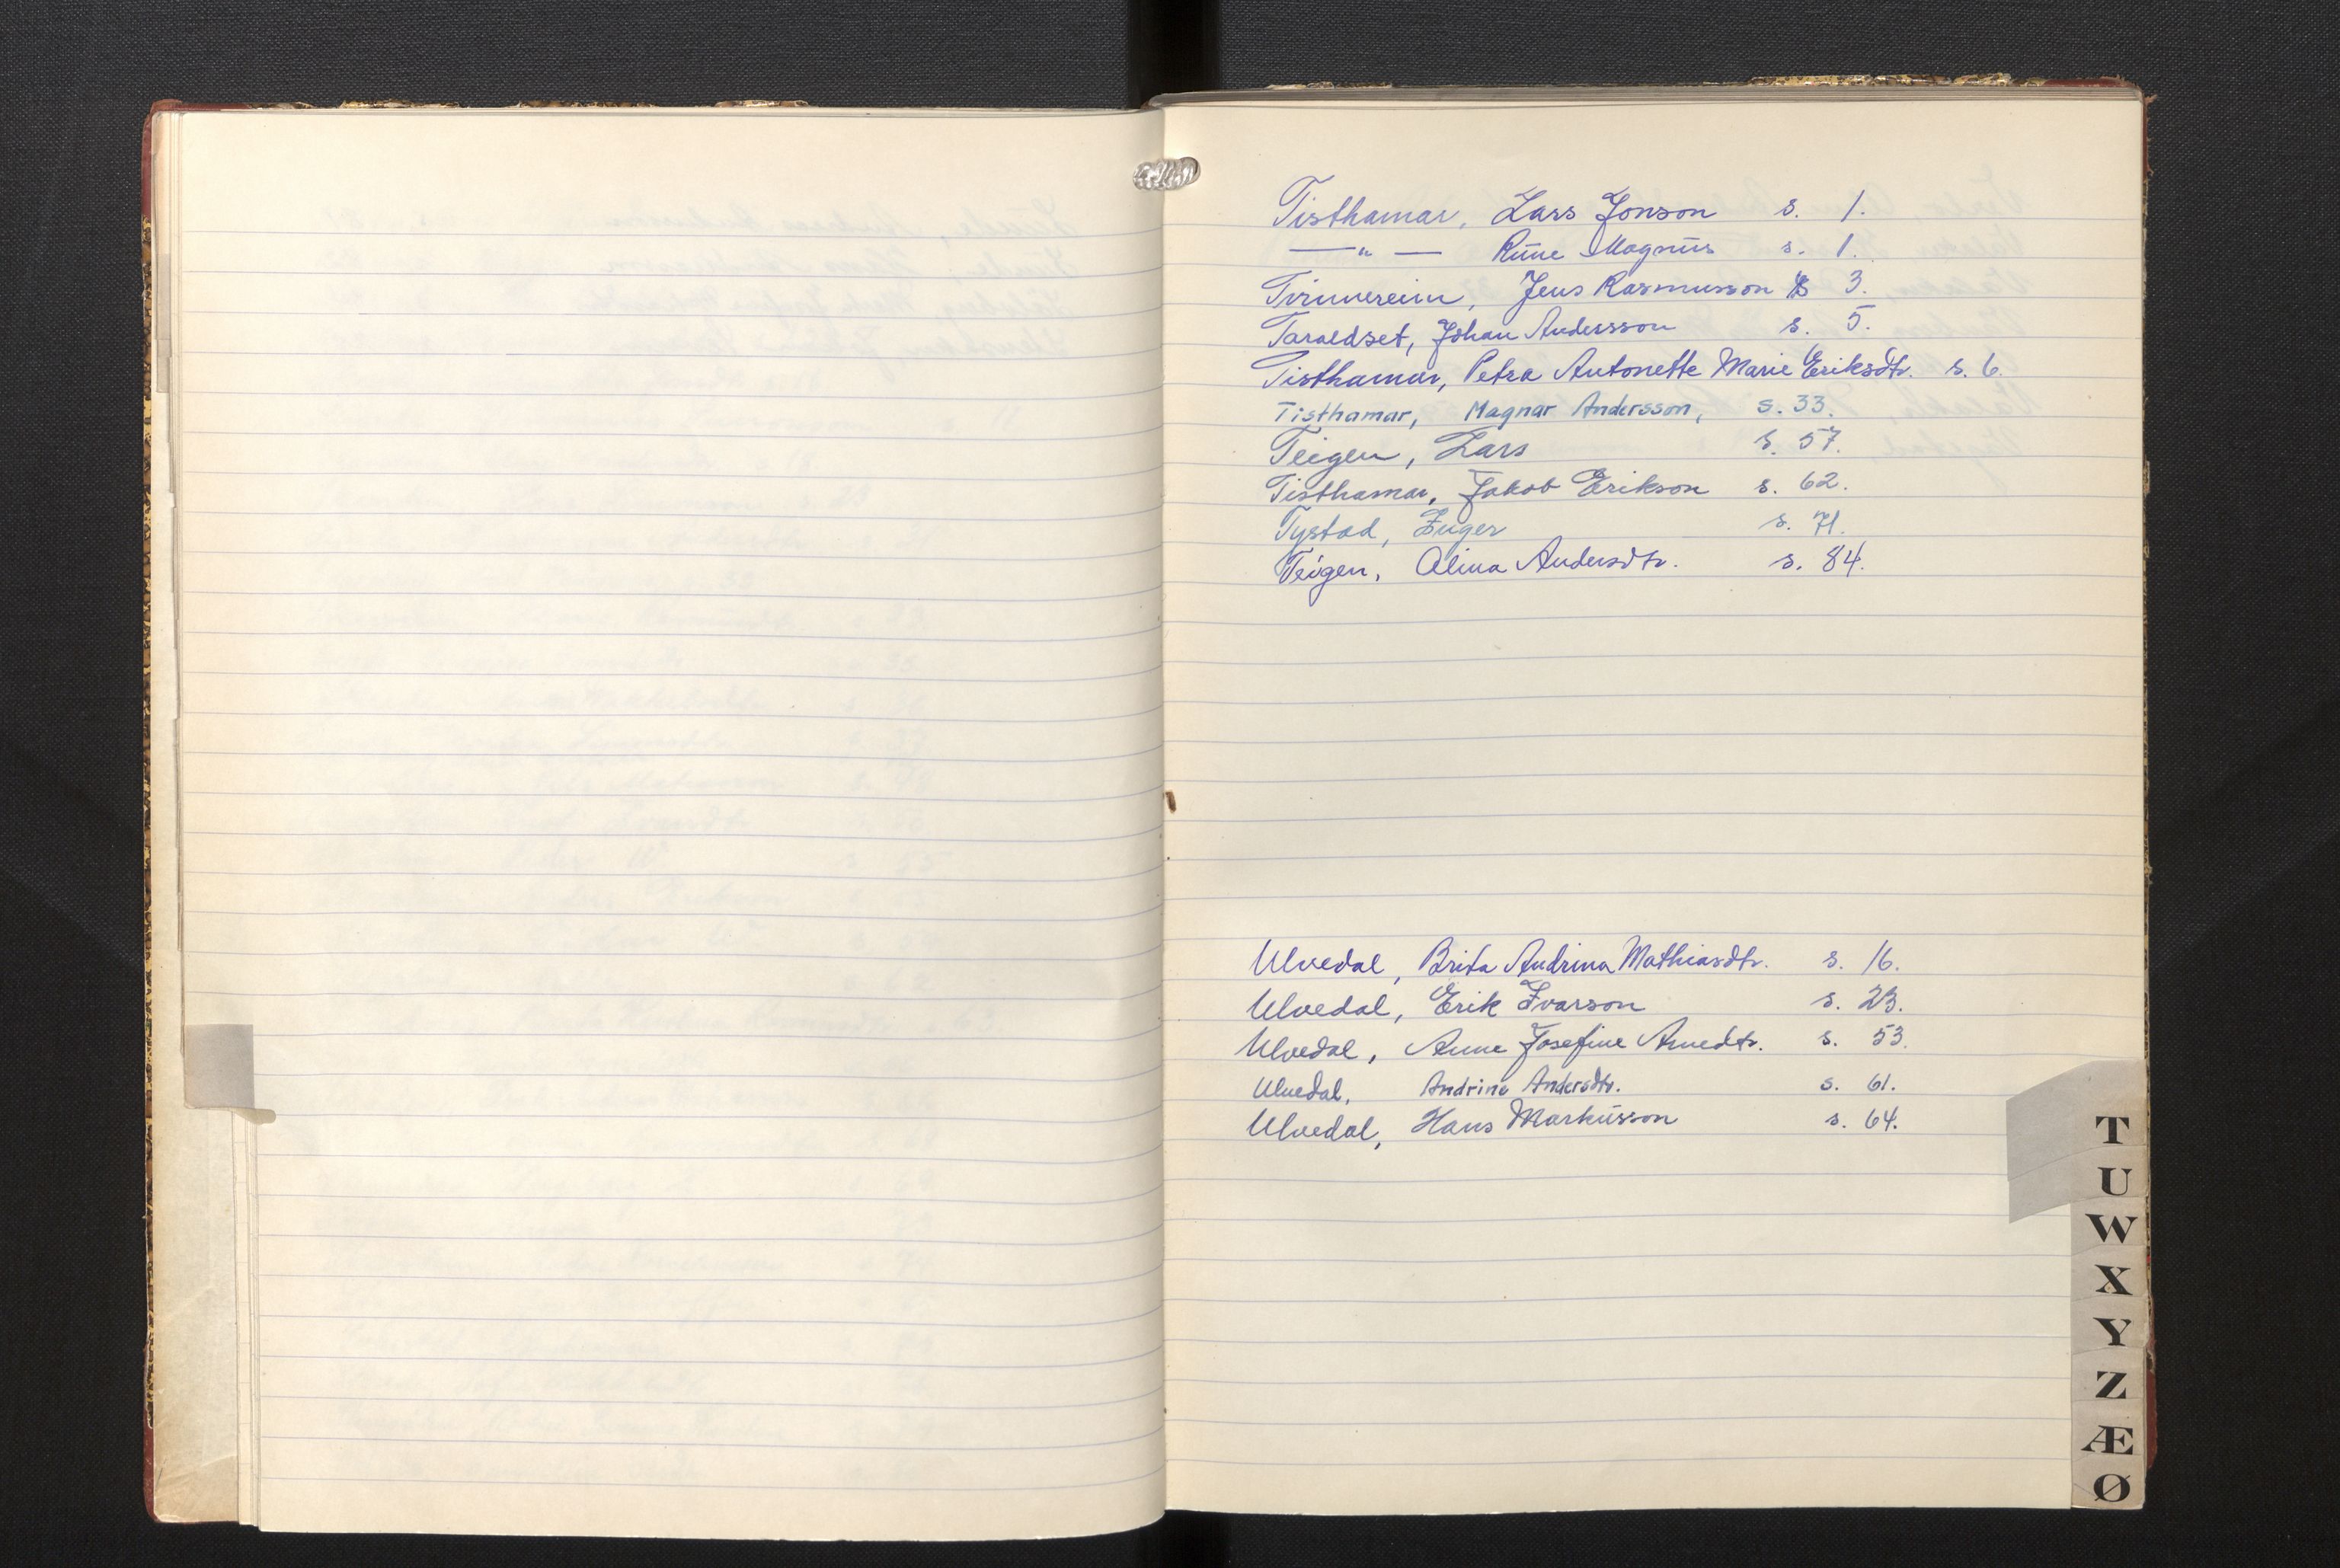 Tisthamar, Lars Jonson s. 1.
—"— Rune Magnus s. 1.
Tvinnereim, Jens Rasmusson s 3.
Taraldset, Johan Andersson s. 5.
Tisthamar, Petra Antonette Marie Eriksdtr. s. 6.
Tisthamar, Magnar Andersson, s. 33.
Teigen, Lars s. 57.
Tisthamar, Jakob Erikson s. 62.
Tystad, Inger s. 71.
Teigen, Alina Andersdtr. s. 84.
Ulvedal, Brita Andrina Mathiasdtr. s. 16.
Ulvedal, Erik Ivarson s. 23.
Ulvedal, Anne Josefine Arnedtr. s. 53.
Ulvedal, Andrine Andersdtr. s. 61.
Ulvedal, Hans Markusson s. 64.
T
U
W
X
Y
Z
Æ
Ø